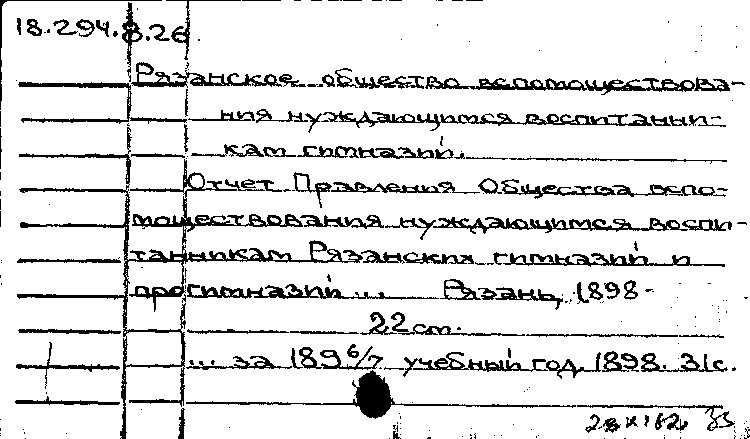 18.294.8.26
Рязанское общество вспомоществова-
ния нуждающимся воспитанни-
кам гимназий.
Отчет Правления Общества вспо-
моществования нуждающимся воспи-
танникам Рязанских гимназий и
прогимназий... Рязань, 1898-
22 см.
... за 1896/7 учебный год. 1898. 31с.